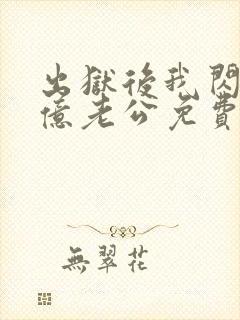 出獄後我閃
億老公免費
無翠花